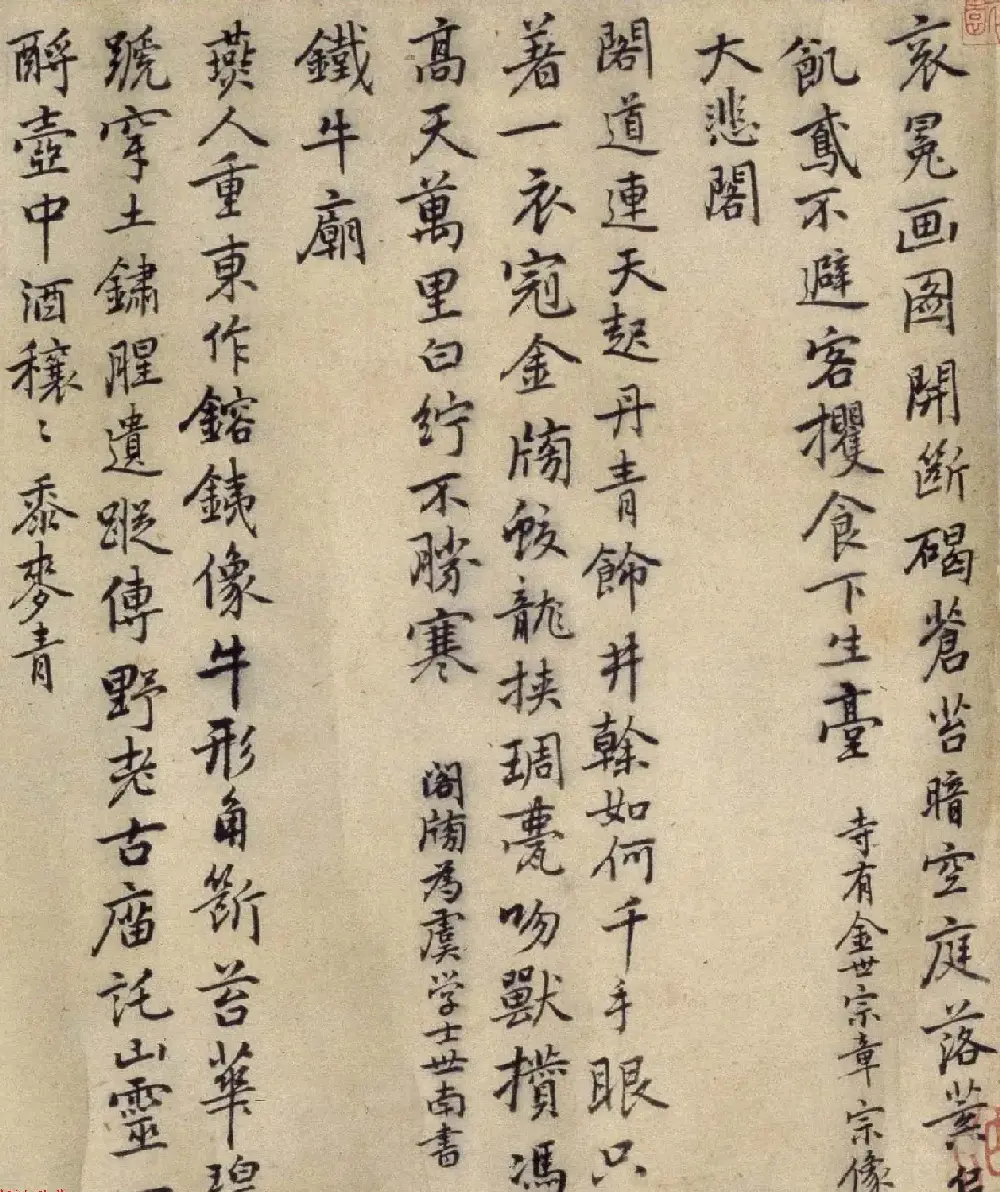 衮冕画图開断碣蒼苔暗空庭落葉
飢鳶不避客攫食下生臺 寺有金世宗章宗像
大悲閣
閣道連天起丹青餙井榦如何千手眼只
著一衣冠金牓蛟龍挟琱甍吻獸攢馮
高天萬里白紵不勝寒 閣牓為虞学士世南書
鐵牛廟
燕人重東作鎔銕像牛形角斷苔華碧
號穿土鏽腥遺蹤傳野老古庿託山靈
酹壺中酒穰〻黍麥青